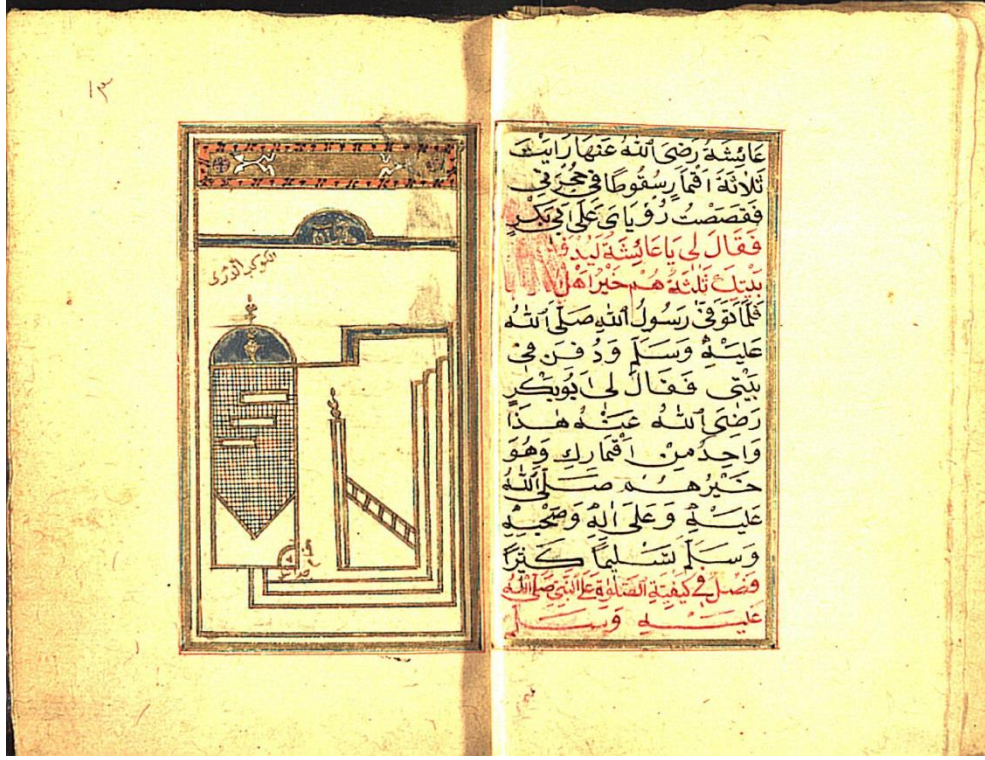 عَائِشَةُ رَضِيَ اللّٰهُ عَنْهَا رَاَيْتُ
ثَلَاثَةَ اَقْمَارٍ سُقُوطًا فِي حُجْرَتِي
فَقَصَصْتُ رُؤْيَايَ عَلَى اَبِي بَكْرٍ
فَقَالَ لِي يَا عَائِشَةُ لَيُدْفَنَ
بَيْتِكِ ثَلٰثَةٌ هُمْ خَيْرُ اَهْلِ
فَلَمَّا تُوُفِّيَ رَسُولُ اللّٰهِ صَلَّى اللّٰهُ
عَلَيْهِ وَسَلَّمَ وَدُفِنَ فِي
بَيْتِي فَقَالَ لِي اَبُو بَكْرٍ
رَضِيَ اللّٰهُ عَنْهُ هٰذَا
وَاحِدٌ مِنْ اَقْمَارِكِ وَهُوَ
خَيْرُهُمْ صَلَّى اللّٰهُ
عَلَيْهِ وَعَلَى اٰلِهِ وَصَحْبِهِ
وَسَلَّمَ تَسْلِيمًا كَثِيرًا
فَصْلٌ فِي كَيْفِيَّةِ الصَّلٰوةِ عَلَى النَّبِيِّ صَلَّى اللّٰهُ
عَلَيْهِ وَسَلَّمَ
١٣
الكوكب الدرى